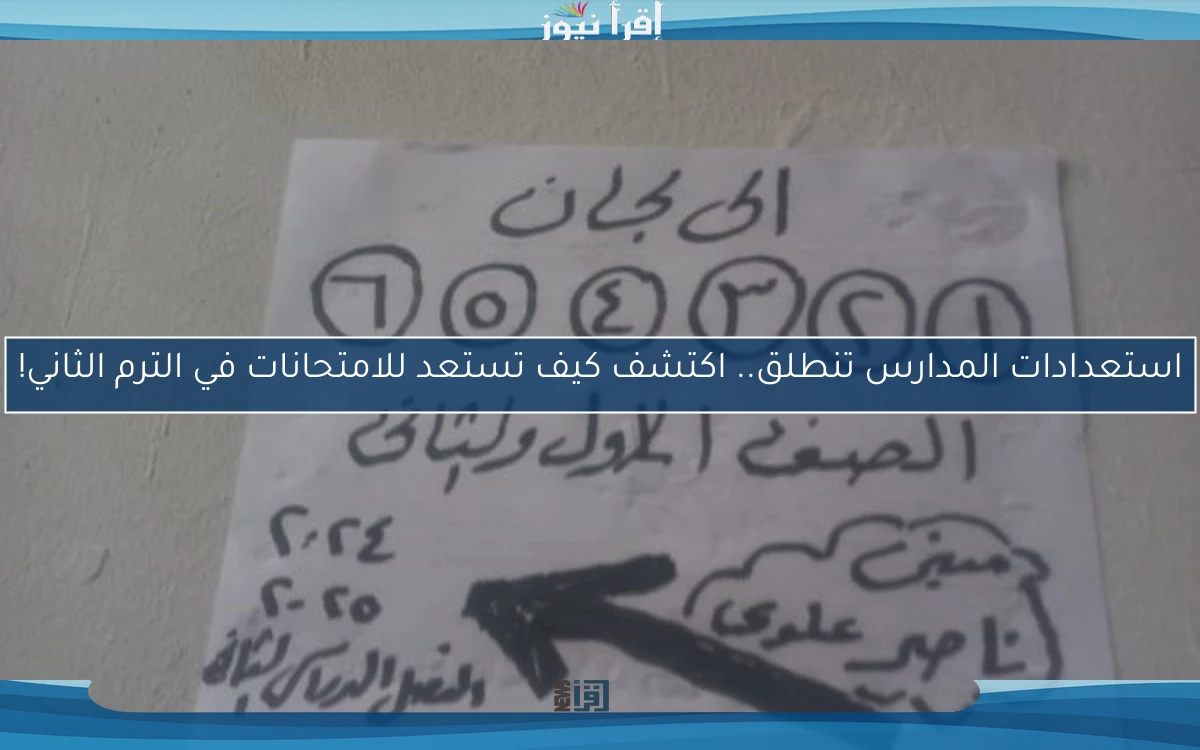 إقرأ نيوز
الى لجان
١ ٢ ٣ ٤ ٥ ٦
استعدادات المدارس تنطلق.. اكتشف كيف تستعد للامتحانات في الترم الثاني!
الصف الاول والثاني
٢٠٢٤
٢٠٢٥
الفصل الدراسى الثانى
مبنى
ناصر علوى
إقرأ NEWS